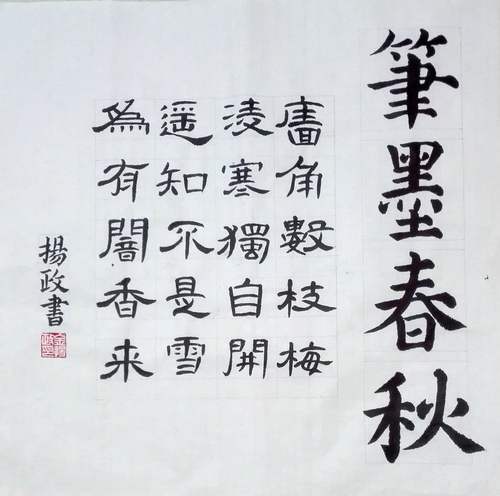 筆墨春秋
廧角數枝梅
淩寒獨自開
遥知不是雪
為有闇香来
揚政書